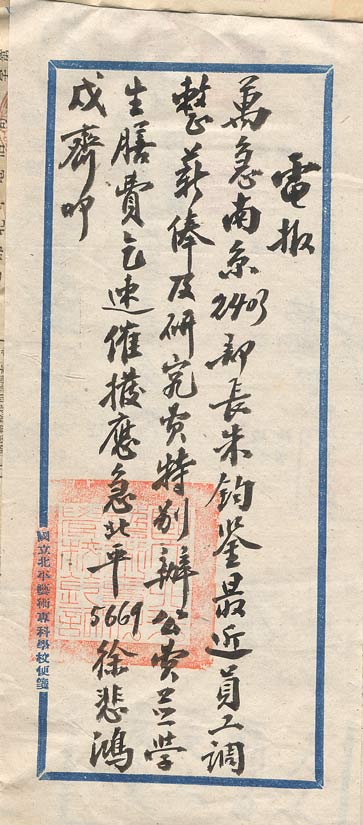 電报
萬急南京2403部長朱鈞鉴最近員工調
整薪俸及研究费特别辦公费並学
生膳費乞速催撥應急北平5669徐悲鴻
戌齊叩
國立北平藝術專科學校便箋